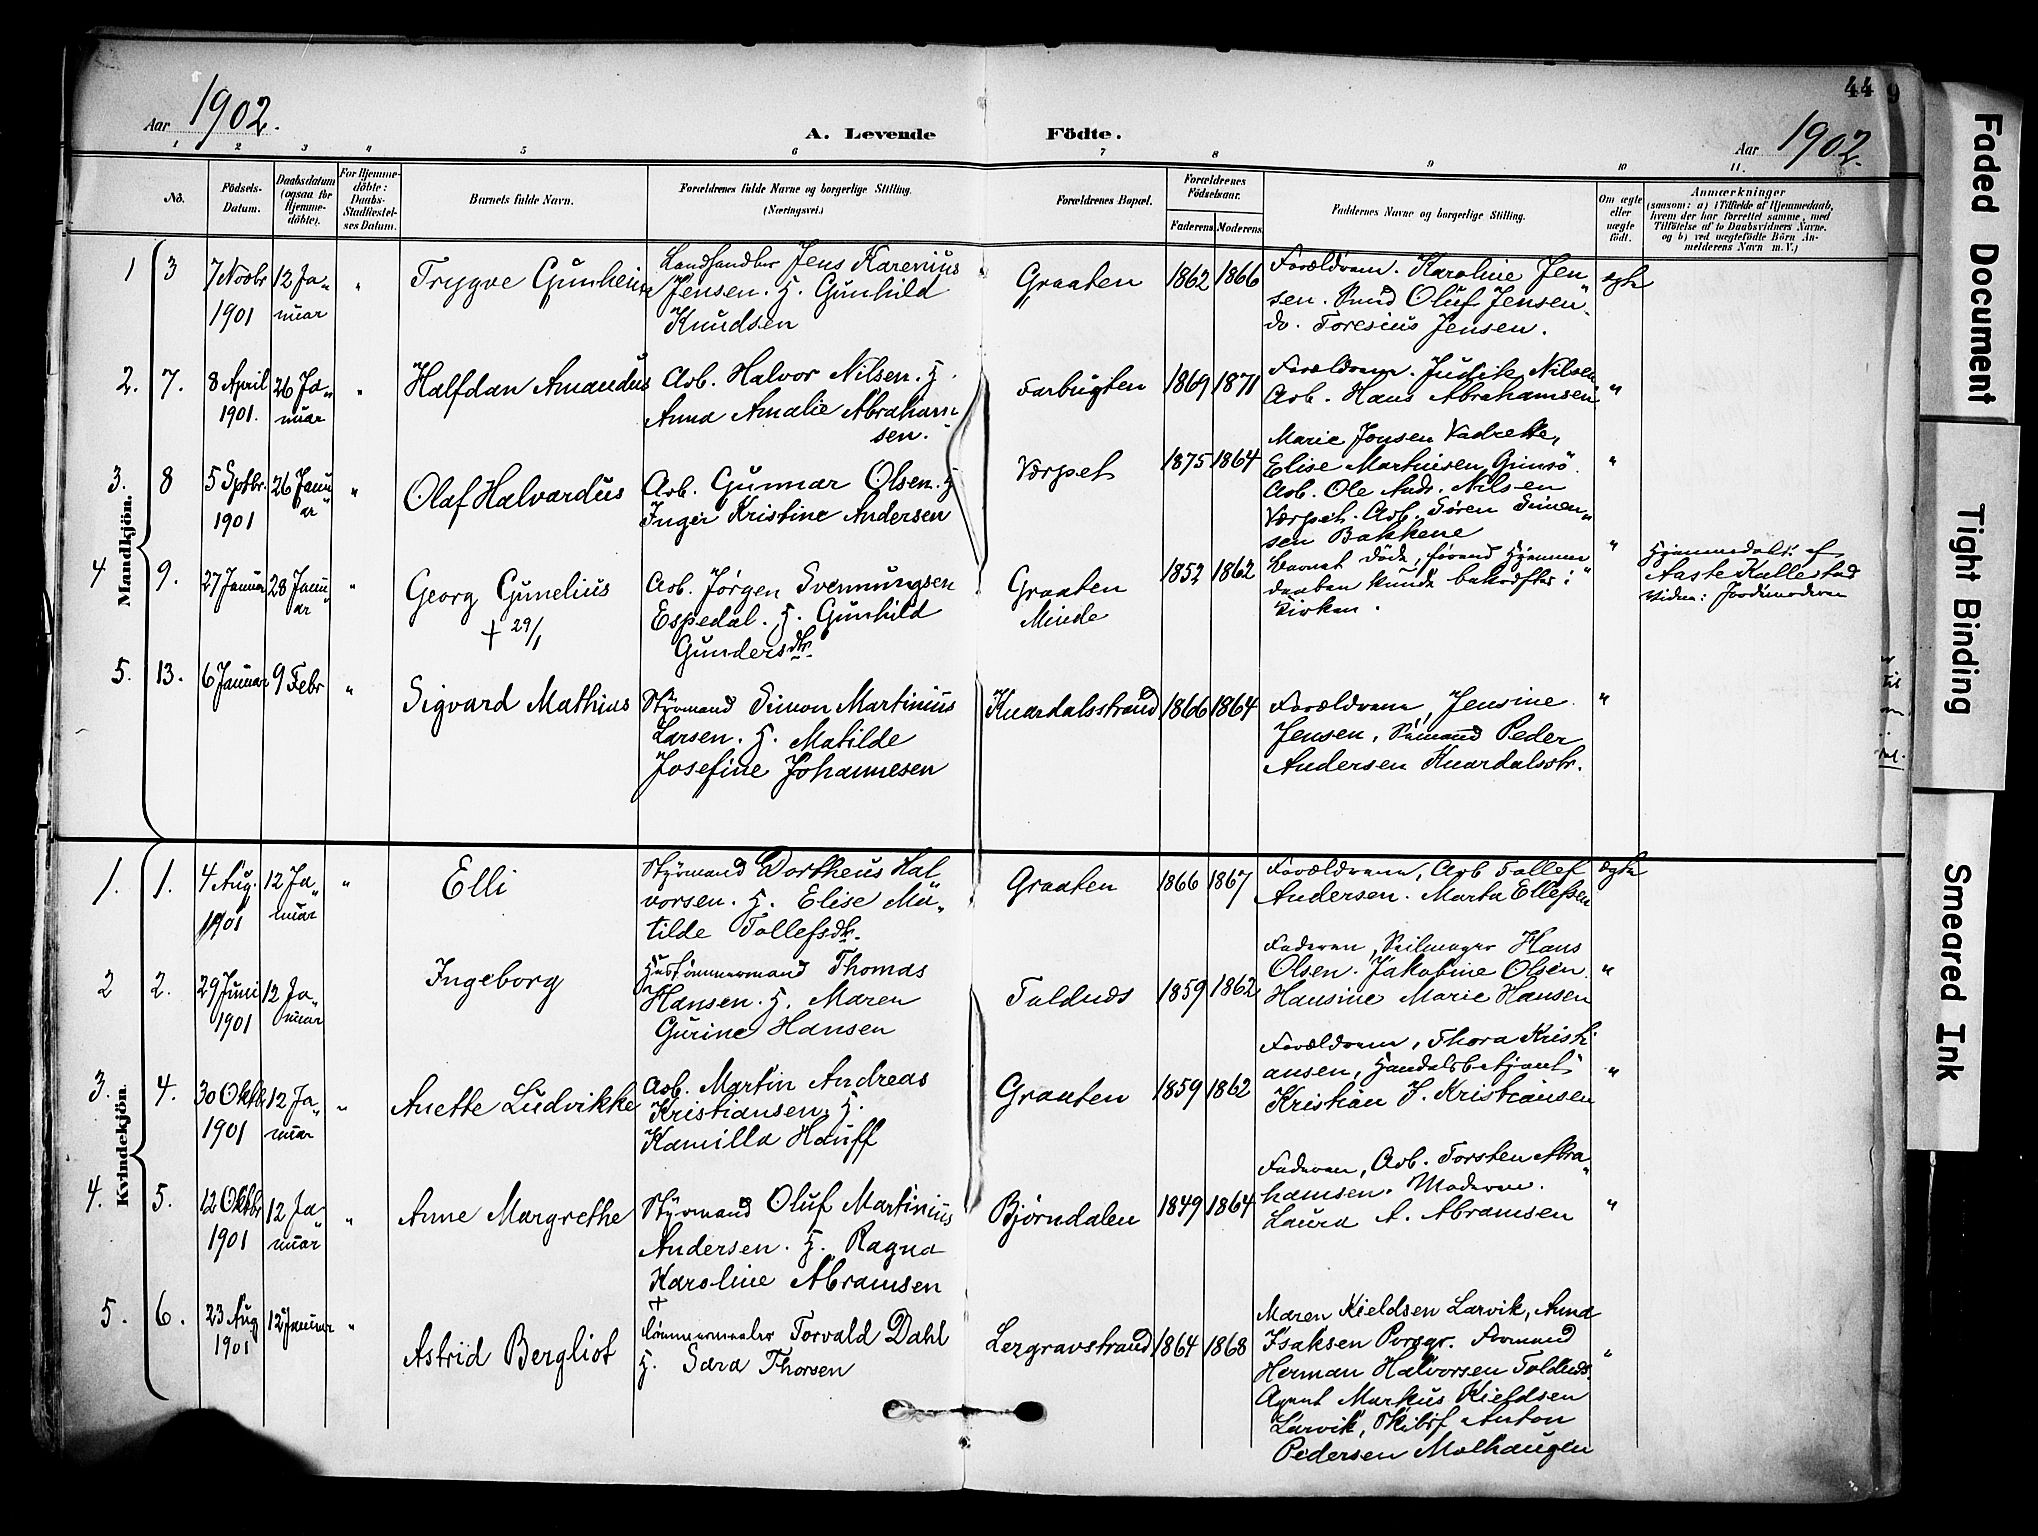 44
9
Aar 1902.
A. Levende Födte.
Aar 1902.
1 2 3 4 5 6 7 8 9 10 11.
No.
Födsels-Datum.
Daabsdatum (ogsaa for Hjemme-döbte).
For Hjemme-döbte: Daabs-Stadfæstel-ses Datum.
Barnets fulde Navn.
Forældrenes fulde Navne og borgerlige Stilling. (Næringsvei.)
Forældrenes Bopæl.
Forældrenes Födselsaar.
Faderens Moderens
Faddernes Navne og borgerlige Stilling.
Om ægte eller uægte födt.
Anmærkninger
(saasom: a) i Tilfælde af Hjemmedaab,
hvem der har forrettet samme, med
Tilföielse af to Daabsvidners Navne.
og b) ved uægtefödte Börn An-
melderens Navn m. V.)
Mandkjön.
1 3 7 Novbr 1901 12 Ja„nuar „ Trygve Gunheim
Landhandler Jens Karenius
Jensen. H. Gunhild
Knudsen
Graaten 1862 1866
Forældrene. Karoline Jen
sen. Smed Oluf Jensen„
do. Toresius Jensen.
ægte
2. 7. 8 April 1901. 26 Ja„nuar „ Halfdan Amandus
Arb. Halvor Nilsen. H.
Anna Amalie Abraham
sen.
Farbugten 1869 1871
Forældrene. Judite Nilsen
Arb. Hans Abrahamsen
„
3. 8 5 Sptbr. 1901 26 Janu„ar „ Olaf Halvardus
Arb. Gunnar Olsen. H
Inger Kristine Andersen
Værpet 1875 1864
Marie Jonsen Vadrette,
Elise Martinsen Gimsö.
Arb. Ole Andr. Nilsen
Værpet. Arb. Søren Simen„
sen Bakkene
„
4 9. 27 Januar 28 Janu„ar „ Georg Gunelius
+ 29/1
Arb. Jørgen Svennungsen
Espedal. H. Gunhild
Gundersdtr.
Graaten
Minde
1852 1862
Barnet døde, førend Hjemme
daaben kunde bekræftes i
Kirken.
„
Hjemmedøbt af
Aaste Kallestad
Vidne: Jordemoderen
5. 13. 6 Januar 9 Febr „ Sigvard Mathias
Styrmand Simon Martinius
Larsen. H. Matilde
Josefine Johannesen
Knardalsstrand 1866 1864
Forældrene, Jensine
Jensen, Sömand Peder
Andersen Knardalsstr.
„
Kvindekjön.
1. 1. 4 Aug. 1901 12 Ja„nuar „ Elli
Styrmand Dortheus Hal
vorsen. H. Elise Ma„
tilde Tollefsdtr.
Graaten 1866 1867
Forældrene, Arb Tollef
Andersen. Marta Ellefsen
Ægte
2 2. 29 Juni 1901 12 Ja„nuar Ingeborg
Hustømmermand Thomas
Hansen. H. Maren
Gurine Hansen
Foldnes 1859 1862
Faderen, Seilmager Hans
Olsen. Jakobine Olsen.
Hansine Marie Hansen
„
3. 4. 30 Oktb 1901 12 Ja„nuar „ Anette Ludvikke
Arb. Martin Andreas
Kristiansen, H.
Kamilla Hauff
Graaten 1859 1862
Forældrene, Thora Kristi
ansen, Handelsbetjent
Kristian J. Kristiansen
„
4. 5. 12 Oktbr 1901 12 Ja„nuar „ Anne Margrethe
Styrmand Oluf Martinius
Andersen. H. Ragna
Karoline Abramsen
+
Bjørndalen 1849 1864
Faderen, Arb. Torsten Abra„
hamsen. Moderen.
Laura A. Abramsen
„
5. 6. 23 Aug 1901 12 Januar „ Astrid Bergliot
Tømmermæler Torvald Dahl
H. Sara Thorsen
Lergravstrand 1864 1868
Maren Kieldsen Larvik, Anna
Isaksen Porsgr. Formand
Herman Halvorsen Foldnes.
Agent Markus Kieldsen
Larvik, Skibsf Anton
Pedersen Molhaugen
„
Faded Document
Tight Binding
Smeared Ink